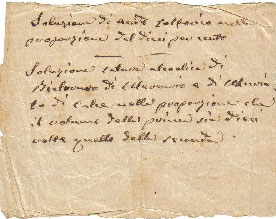 Soluzione di acido solforico nella
proporzione del dieci per cento
Soluzione satura alcoolica di
di Mercurio e di
to di calce nella proporzione che
il volume della prima sia dieci
volte quello della seconda